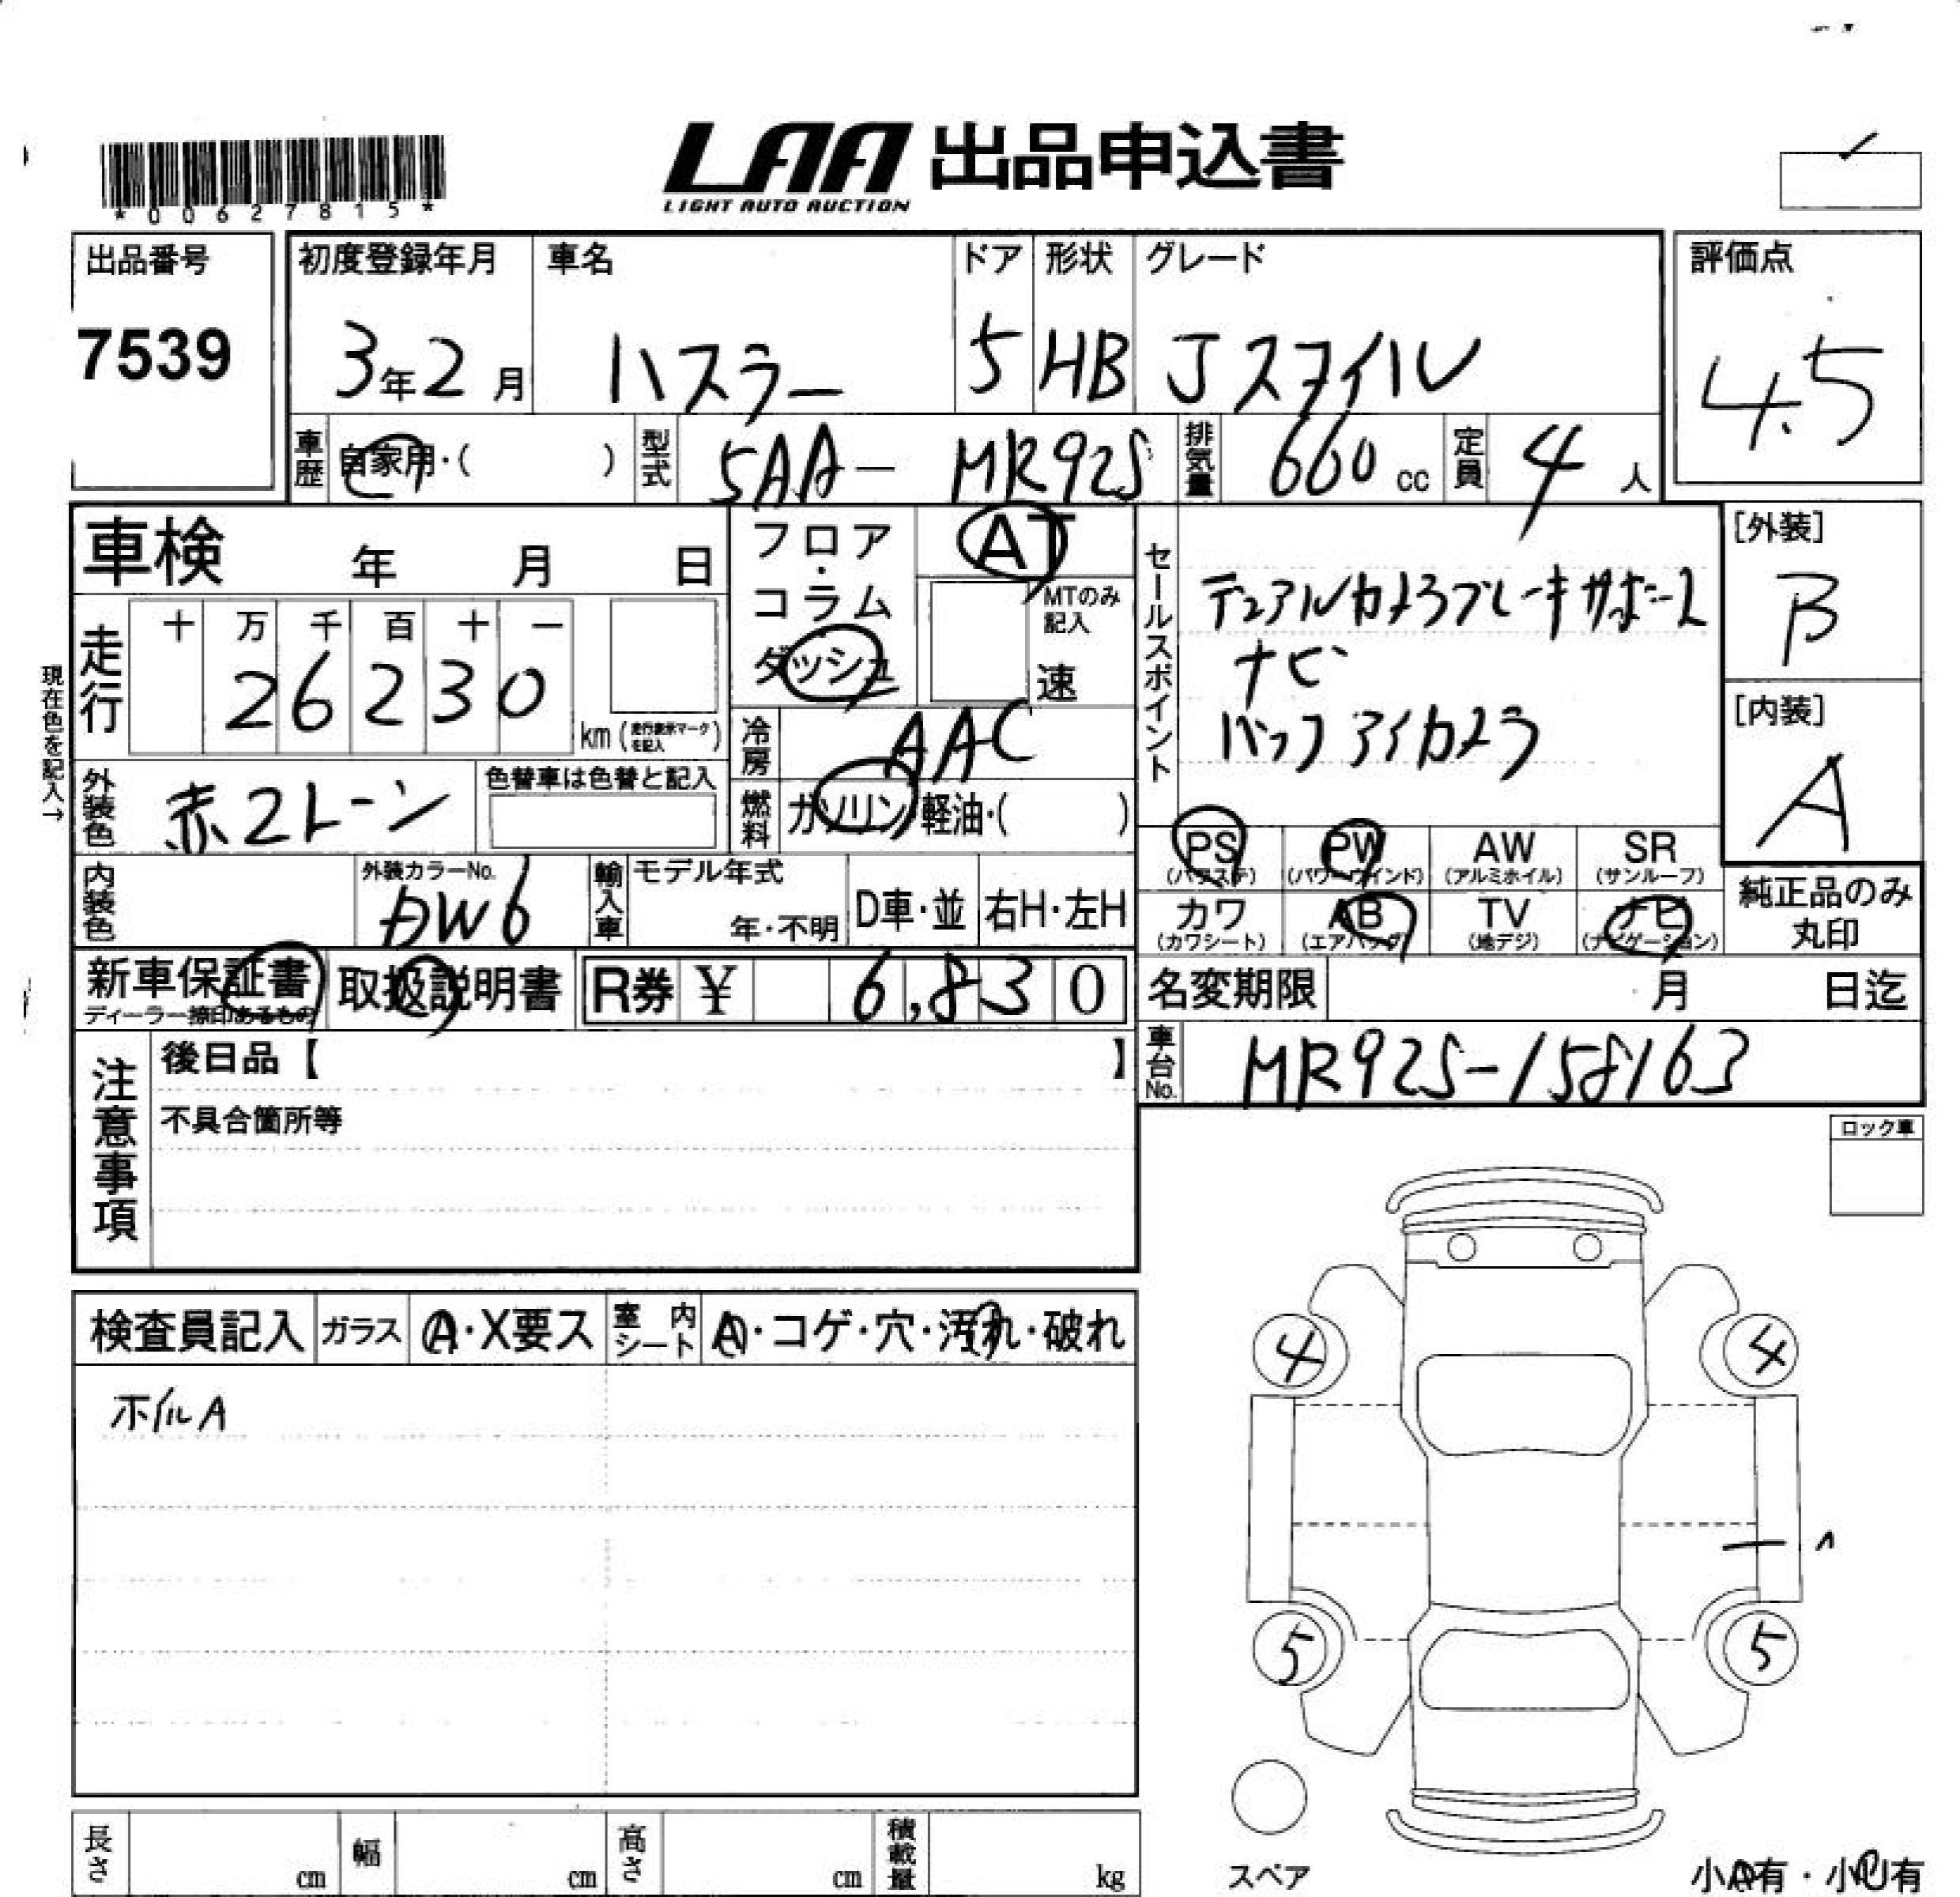 LAA 出品申込書
LIGHT AUTO AUCTION
*00627815*
出品番号
7539
初度登録年月
3年2月
車名
ハスラー
ドア
5
形状
HB
グレード
Jスタイル
評価点
4.5
車歴
自家用・( )
型式
5AA- MR92S
排気量
660 cc
定員
4 人
車検 年 月 日
フロア・コラム
ダッシュ
AT
MTのみ記入
速
セールスポイント
デュアルカメラブレーキサポート
ナビ
バックアイカメラ
[外装]
B
[内装]
A
現在色を記入→
走行
十 万 千 百 十 一
2 6 2 3 0
km (走行表示マークを記入)
冷房
AAC
外装色
赤2トーン
色替車は色替と記入
燃料
ガソリン・軽油・( )
PS (パワステ)
PW (パワーウインド)
AW (アルミホイル)
SR (サンルーフ)
カワ (カワシート)
AB (エアバッグ)
TV (地デジ)
ナビ (ナビゲーション)
純正品のみ丸印
内装色
外装カラーNo.
DW6
輸入車
モデル年式
年・不明
D車・並
右H・左H
新車保証書
ディーラー捺印あるもの
取扱説明書
R券 ¥ 6,830
名変期限 月 日迄
車台No.
MR92S-158163
注意事項
後日品【 】
不具合箇所等
ロック車
検査員記入
ガラス
A・X要ス
室内シート
A・コゲ・穴・汚れ・破れ
ホイルA
4 4
5 5
スペア
長さ cm
幅 cm
高さ cm
積載量 kg
小A有・小U有